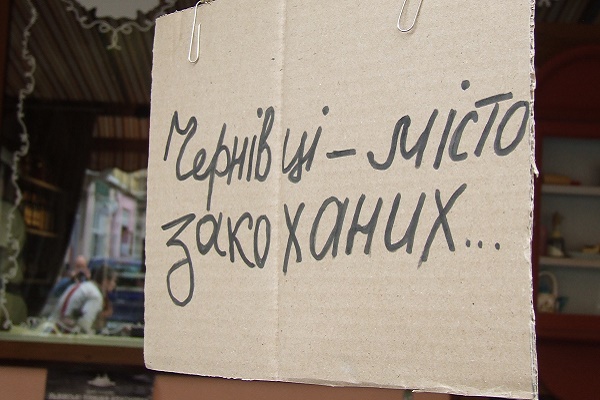 Чернівці - місто
закоханих...